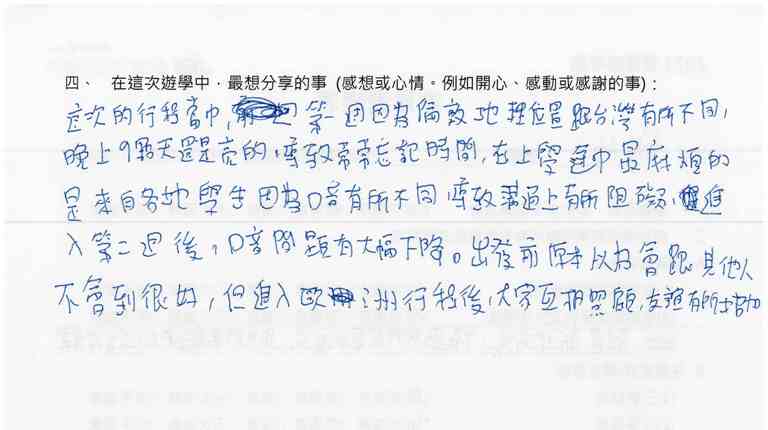 四、 在這次遊學中，最想分享的事 (感想或心情。例如開心、感動或感謝的事)：
這次的行程當中，第一週因為倫敦地理位置跟台灣有所不同，
晚上9點天還是亮的，導致常常忘記時間，在上學途中最麻煩的
是來自各地學生因為口音有所不同，導致溝通上有所阻礙，進
入第二週後，口音問題有大幅下降。出發前原本以為會跟其他人
不會到很好，但進入歐洲行程後，大家互相照顧，友誼有所增加